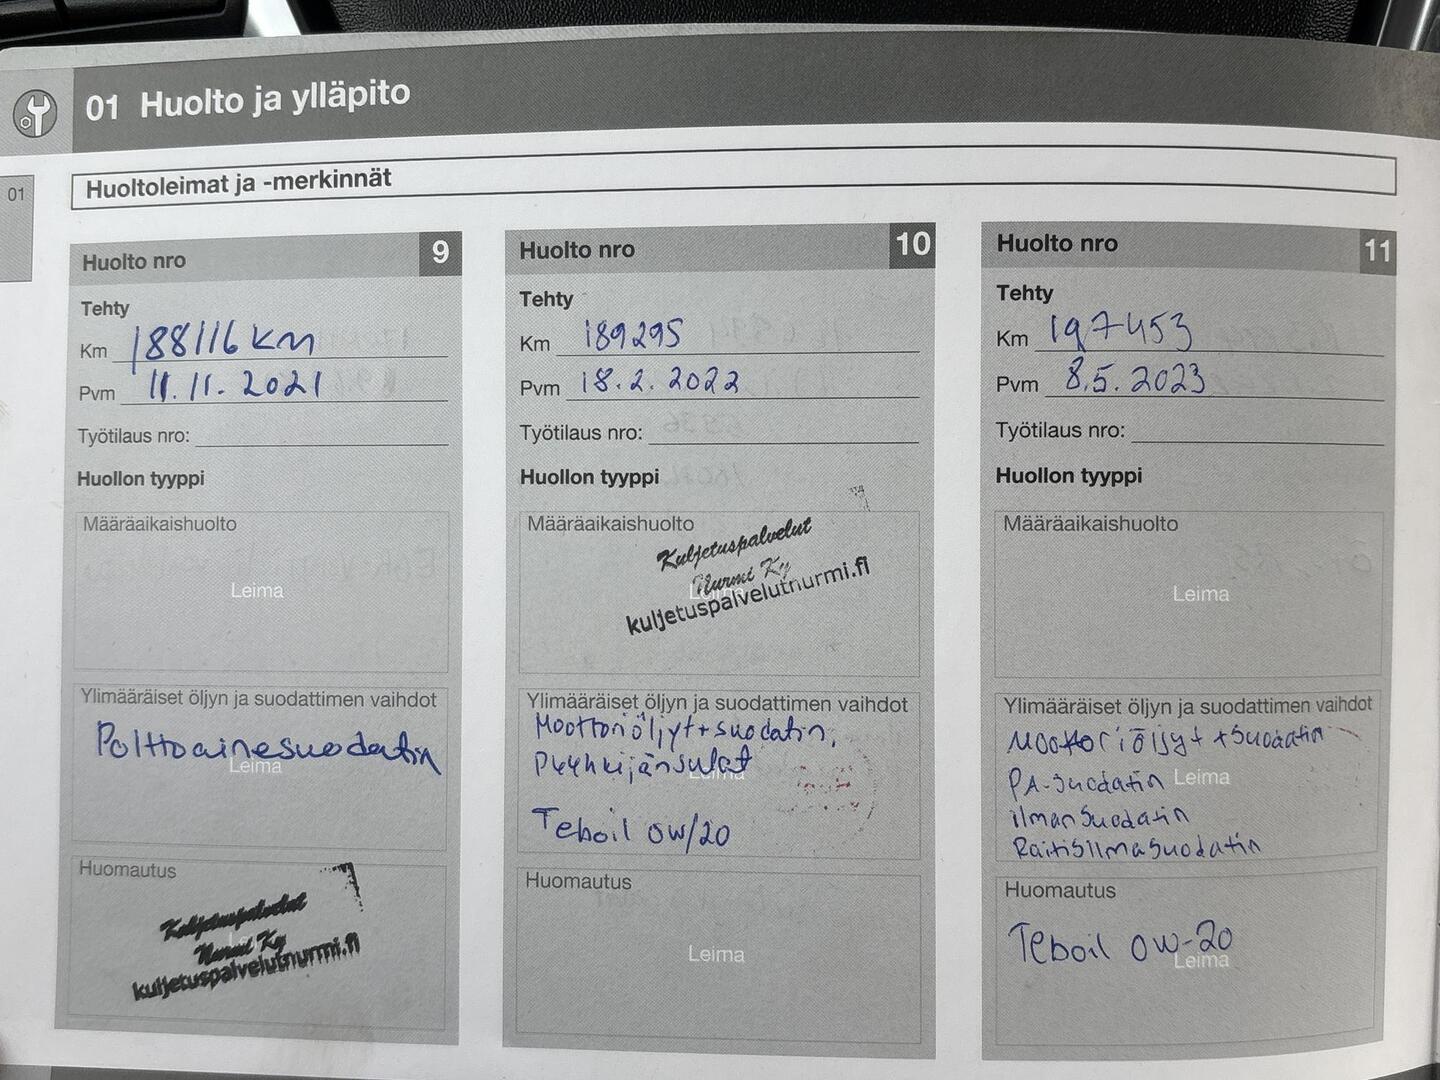 01 Huolto ja ylläpito
01
Huoltoleimat ja -merkinnät
Huolto nro 9
Tehty
Km 188116 km
Pvm 11.11.2021
Työtilaus nro:
Huollon tyyppi
Määräaikaishuolto
Leima
Ylimääräiset öljyn ja suodattimen vaihdot
Polttoainesuodatin
Leima
Huomautus
Kuljetuspalvelut
Nurmi Ky
kuljetuspalvelutnurmi.fi
Huolto nro 10
Tehty
Km 189295
Pvm 18.2.2022
Työtilaus nro:
Huollon tyyppi
Määräaikaishuolto
Kuljetuspalvelut
Nurmi Ky
kuljetuspalvelutnurmi.fi
Leima
Ylimääräiset öljyn ja suodattimen vaihdot
Moottoriöljyt+suodatin,
Pyyhkijänsulat
Leima
Teboil 0w/20
Huomautus
Leima
Huolto nro 11
Tehty
Km 197453
Pvm 8.5.2023
Työtilaus nro:
Huollon tyyppi
Määräaikaishuolto
Leima
Ylimääräiset öljyn ja suodattimen vaihdot
Moottoriöljyt +suodatin
PA-suodatin
Leima
ilmansuodatin
Raitisilmasuodatin
Huomautus
Teboil 0w-20
Leima